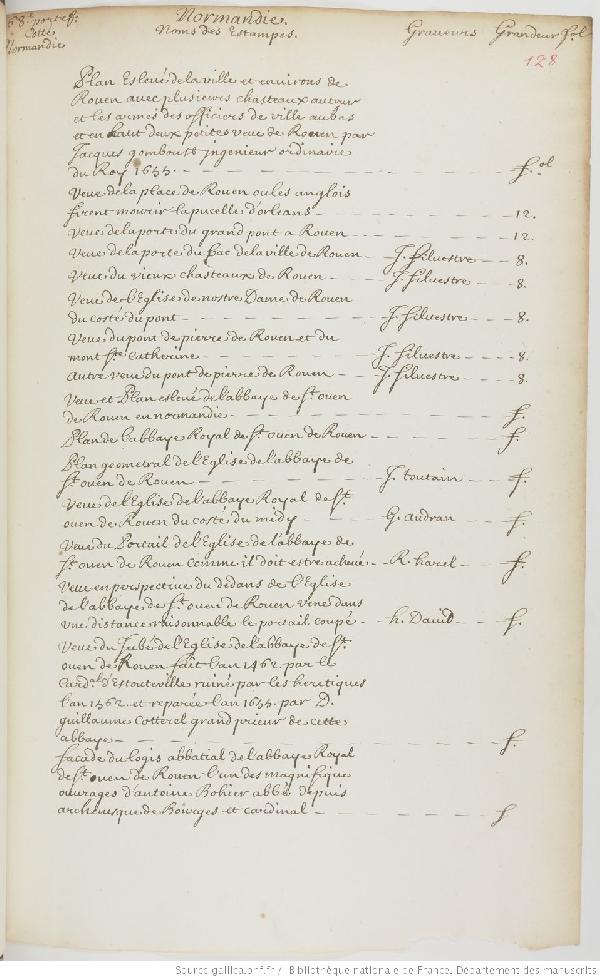 68.e portef.
Cotté
Normandie
Normandie.
Noms des Estampes. Graveurs Grandeur fol.
128
Plan Eslevé de la ville et environs de
Rouen avec plusieurs chasteaux autour
et les armes des officiers de ville au bas
et en haut deux petites veue de Rouen par
Jacques gomboust jngenieur ordinaire
du Roy 1655. f.ol
Veue de la place de Rouen ou les anglois
firent mourir la pucelle d'orleans 12.
Veue de la porte du grand pont a Rouen 12.
Veue de la porte du bac de la ville de Rouen J. Silvestre 8.
Veue du vieux chasteaux de Rouen J. Silvestre 8.
Veue de l'Eglise de nostre Dame de Rouen
du costé du pont J. Silvestre 8.
Veue du pont de pierre de Rouen et du
mont Ste. Catherine J. Silvestre 8.
autre veue du pont de pierre de Rouen J. Silvestre 8.
Veue et Plan eslevé de l'abbaye de St. ouen
de Rouen en normandie f.
Plan de l'abbaye Royal de St. ouen de Rouen f.
Plan geometral de l'Eglise de l'abbaye de
St. ouen de Rouen J. toutain f.
Veue de l'Eglise de l'abbaye Royal de St.
ouen de Rouen du costé du midy G. audran f.
Veue du Portail de l'Eglise de l'abbaye de
St. ouen de Rouen comme il doit estre achevé R. harel f.
Veue en perspective du dedans de l'Eglise
de l'abbaye de St. ouen de Rouen veue dans
une distance raisonnable le portail coupé h. David f.
Veue du Jubé de l'Eglise de l'abbaye de St.
ouen de Rouen fait l'an 1462. par le
Card.al d'Estouteville ruiné par les heretiques
l'an 1562. et reparée l'an 1655. par D.
guillaume Cotterel grand prieur de cette
abbaye f.
façade du logis abbatial de l'abbaye Royal
de St. ouen de Rouen l'un des magnifique
ouvrages d'antoine Bohier abbé depuis
archevesque de Bourges et cardinal f
Source gallica.bnf.fr / Bibliothèque nationale de France. Département des manuscrits